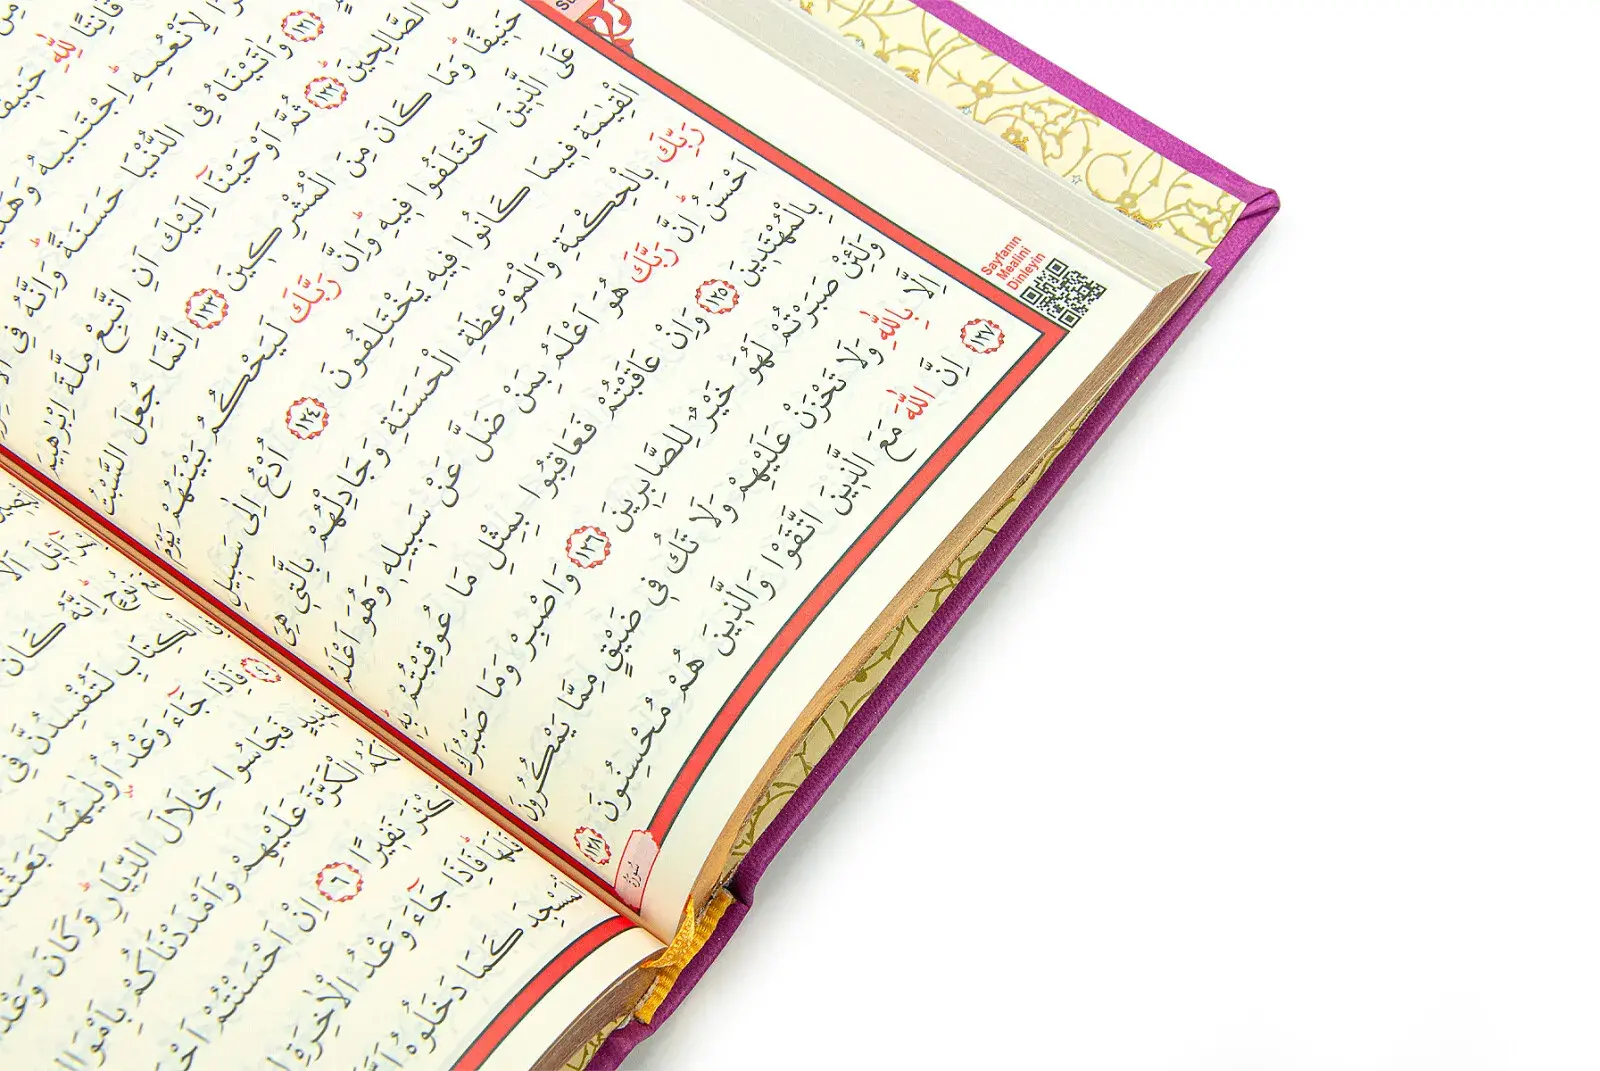 قَانِتًا لِلّٰهِ حَنٖيفًا
لِاَنْعُمِهٖ اِجْتَبٰيهُ
١٢١ وَاٰتَيْنَاهُ فِي الدُّنْيَا حَسَنَةً وَاِنَّهُ فِي
الصَّالِحٖينَ ١٢٢ ثُمَّ اَوْحَيْنَٓا اِلَيْكَ اَنِ اتَّبِعْ مِلَّةَ اِبْرٰهٖيمَ
حَنٖيفًا وَمَا كَانَ مِنَ الْمُشْرِكٖينَ ١٢٣ اِنَّمَا جُعِلَ السَّبْتُ
عَلَى الَّذٖينَ اخْتَلَفُوا فٖيهِ وَاِنَّ رَبَّكَ لَيَحْكُمُ بَيْنَهُمْ يَوْمَ
الْقِيٰمَةِ فٖيمَا كَانُوا فٖيهِ يَخْتَلِفُونَ ١٢٤ اُدْعُ اِلٰى سَبٖيلِ
رَبِّكَ بِالْحِكْمَةِ وَالْمَوْعِظَةِ الْحَسَنَةِ وَجَادِلْهُمْ بِالَّتٖي هِيَ
اَحْسَنُ اِنَّ رَبَّكَ هُوَ اَعْلَمُ بِمَنْ ضَلَّ عَنْ سَبٖيلِهٖ وَهُوَ اَعْلَمُ
بِالْمُهْتَدٖينَ ١٢٥ وَاِنْ عَاقَبْتُمْ فَعَاقِبُوا بِمِثْلِ مَا عُوقِبْتُمْ بِهٖ
وَلَئِنْ صَبَرْتُمْ لَهُوَ خَيْرٌ لِلصَّابِرٖينَ ١٢٦ وَاصْبِرْ وَمَا صَبْرُكَ
اِلَّا بِاللّٰهِ وَلَا تَحْزَنْ عَلَيْهِمْ وَلَا تَكُ فٖي ضَيْقٍ مِمَّا يَمْكُرُونَ
١٢٧ اِنَّ اللّٰهَ مَعَ الَّذٖينَ اتَّقَوْا وَالَّذٖينَ هُمْ مُحْسِنُونَ ١٢٨
Sayfanın
Mealini
Dinleyin
سُورَةُ
مَعَ نُوحٍ اِنَّهُ كَانَ
الْكِتَابِ لَتُفْسِدُنَّ فِي
٤ فَاِذَا جَٓاءَ وَعْدُ اُولٰيهُمَا بَعَثْنَا
شَدٖيدٍ فَجَاسُوا خِلَالَ الدِّيَارِ وَكَانَ وَعْدًا
لَكُمُ الْكَرَّةَ عَلَيْهِمْ وَاَمْدَدْنَاكُمْ بِاَمْوَالٍ
اَكْثَرَ نَفٖيرًا ٦ اِنْ اَحْسَنْتُمْ
فَلَهَا فَاِذَا جَٓاءَ وَعْدُ الْاٰخِرَةِ
الْمَسْجِدَ كَمَا دَخَلُوهُ